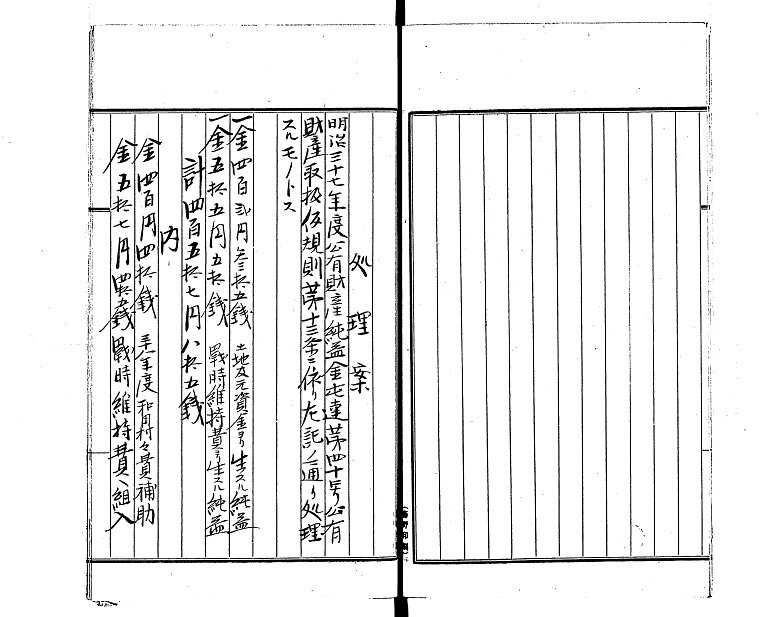 処理案
明治三十七年度公有財産純益金屯達第四十号公有
財産取扱仮規則第十三条ニ依リ左記ノ通リ処理
スルモノトス
一金四百弐円参拾五銭 土地及元資金ヨリ生スル純益
一金五拾五円五拾銭 戦時維持費ヨリ生スル純益
計四百五拾七円八拾五銭
内
金四百円四拾銭 三十八年度和田村々費補助
金五拾七円四拾五銭 戦時維持費ヘ組入